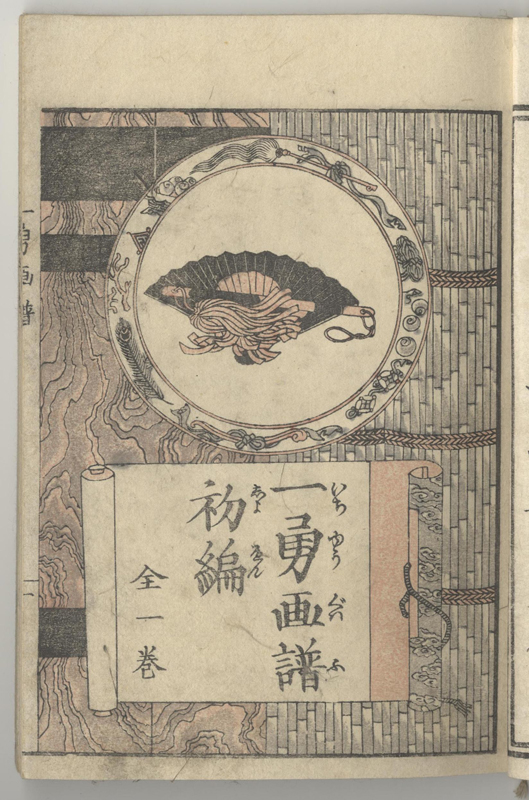 一勇画譜
いちゆうぐわふ
初編
しよへん
全一巻
一勇画譜